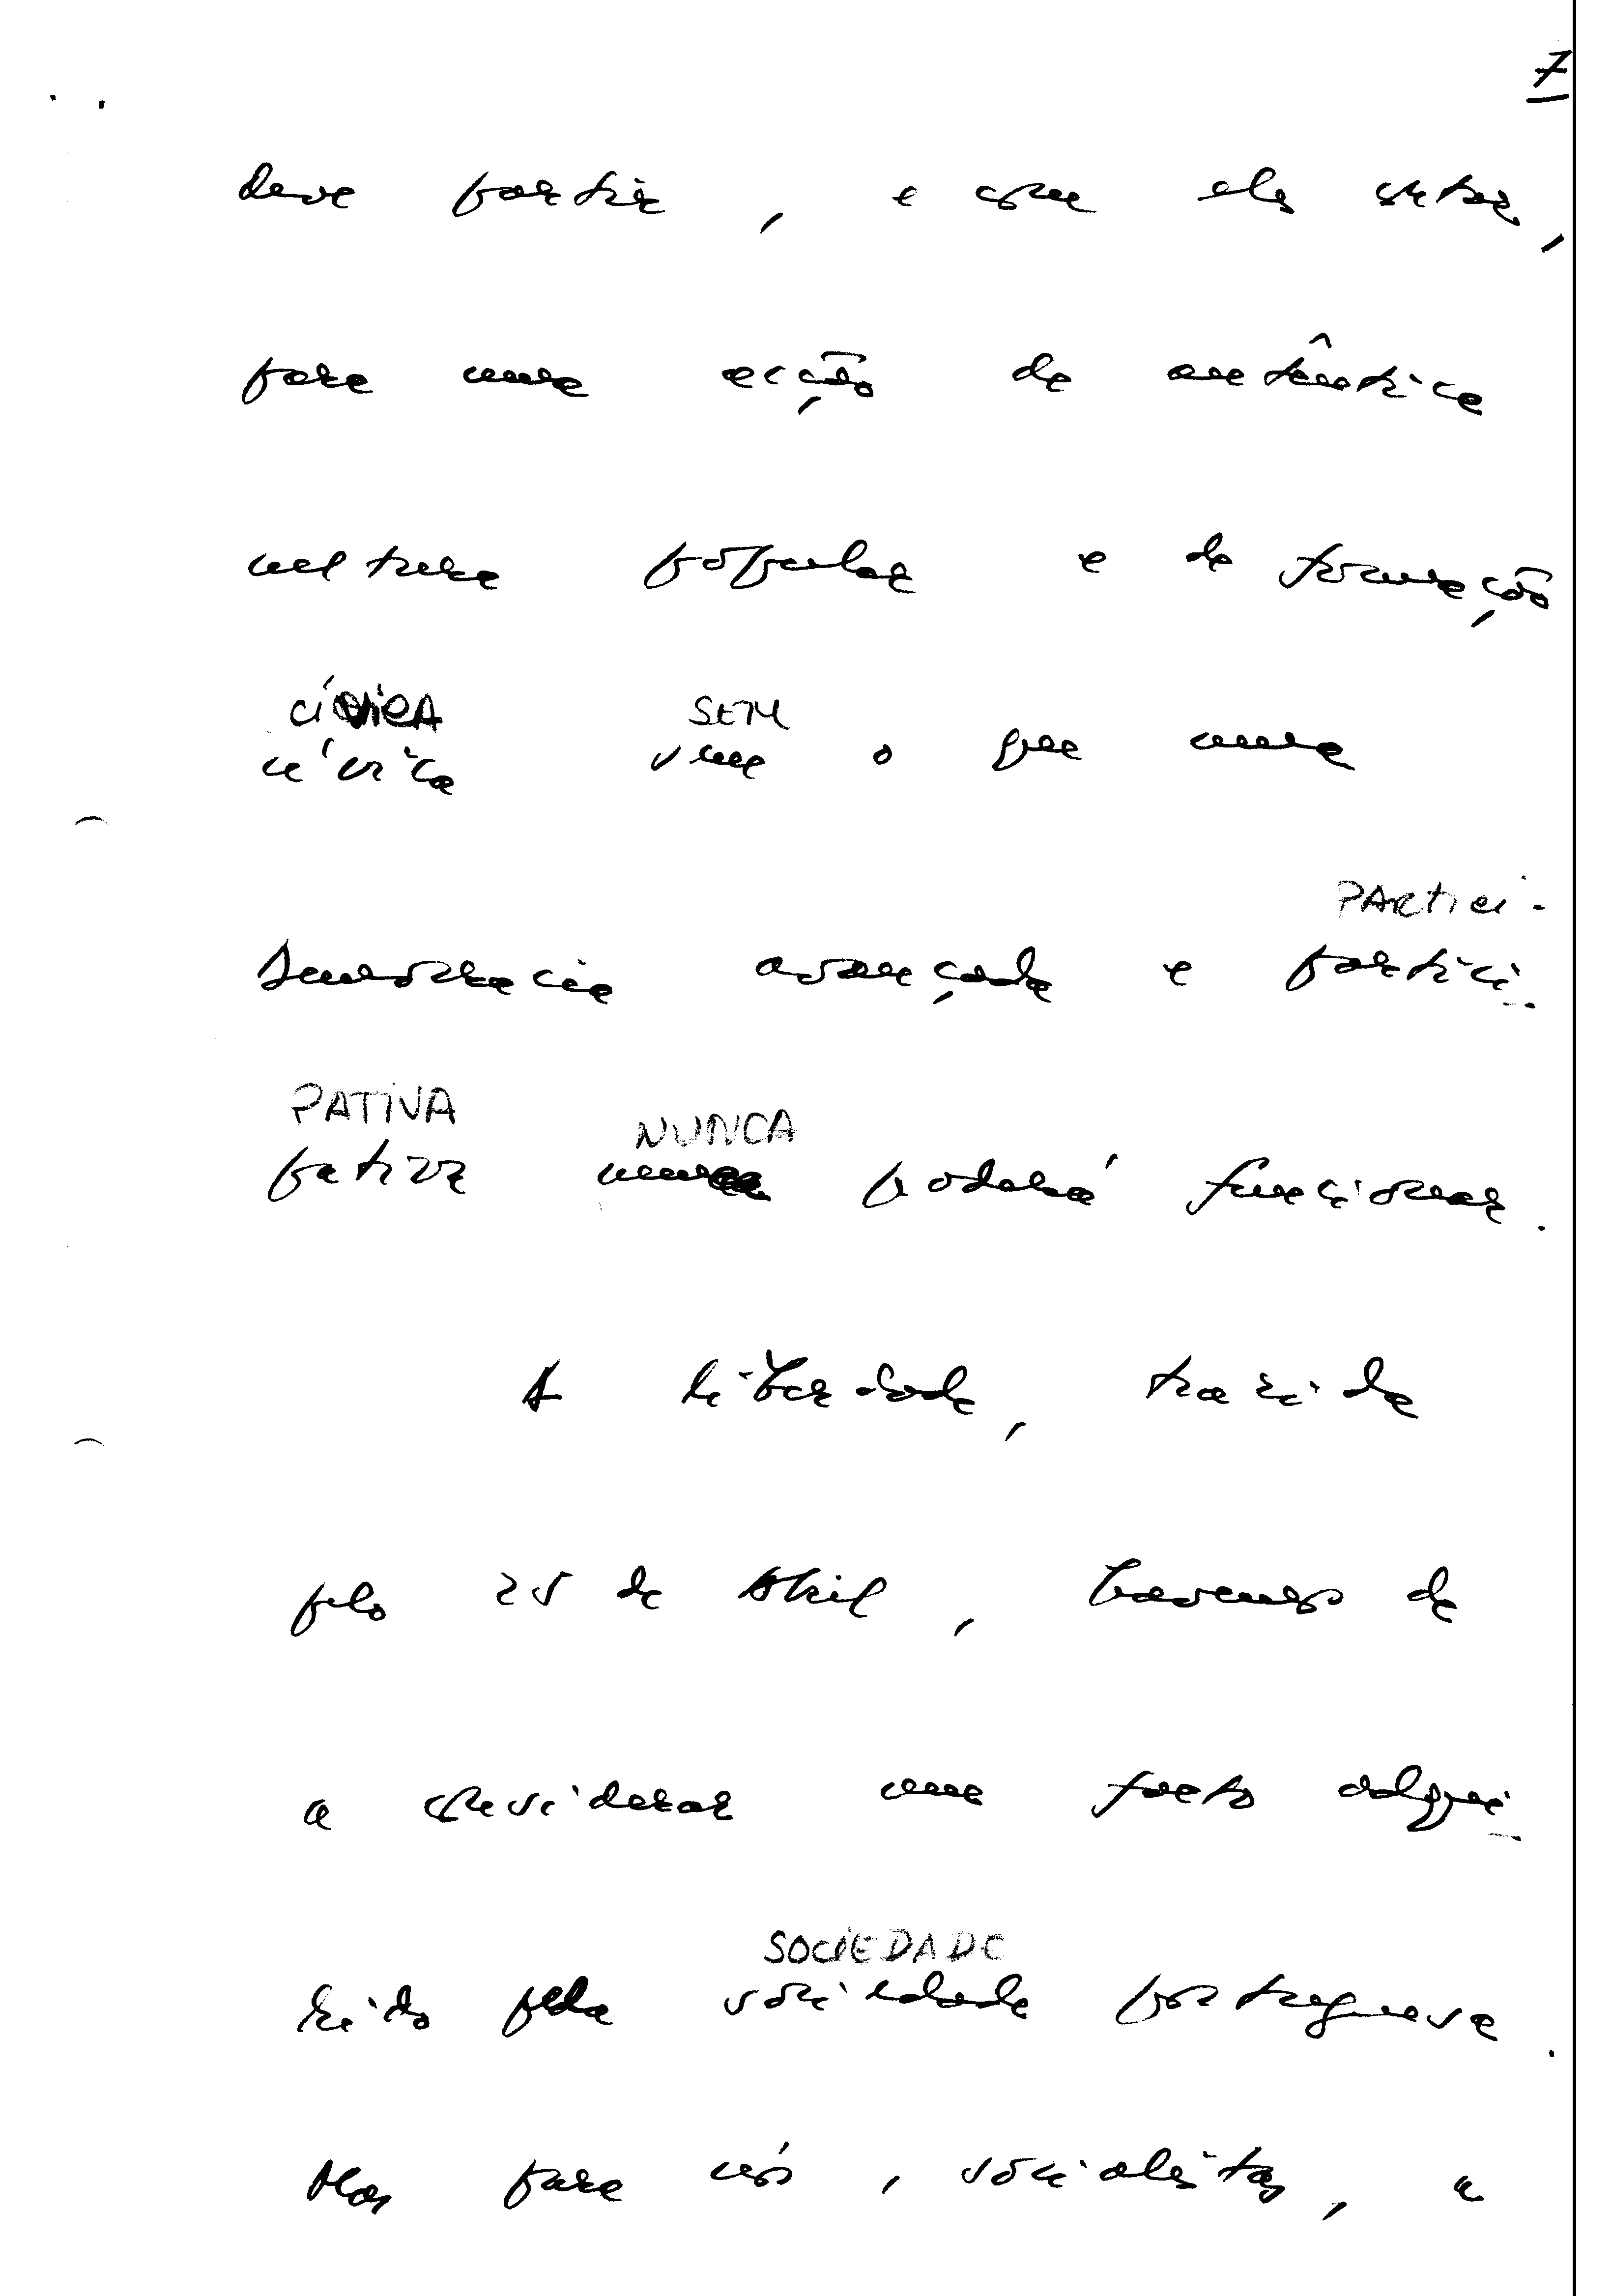 7
deve partir, e com ela contar,
para uma acção de autêntica
cultura popular e de formação
CÍVICA SEM
cívica sem o que uma
PARTICI-
democracia avançada e partici-
PATIVA NUNCA
pativa nunca poderá funcionar.
A liberdade, trazida
pelo 25 de Abril, havemos de
a considerar um facto adqui-
SOCIEDADE
rido pela sociedade portuguesa.
Mas para nós, socialistas, a